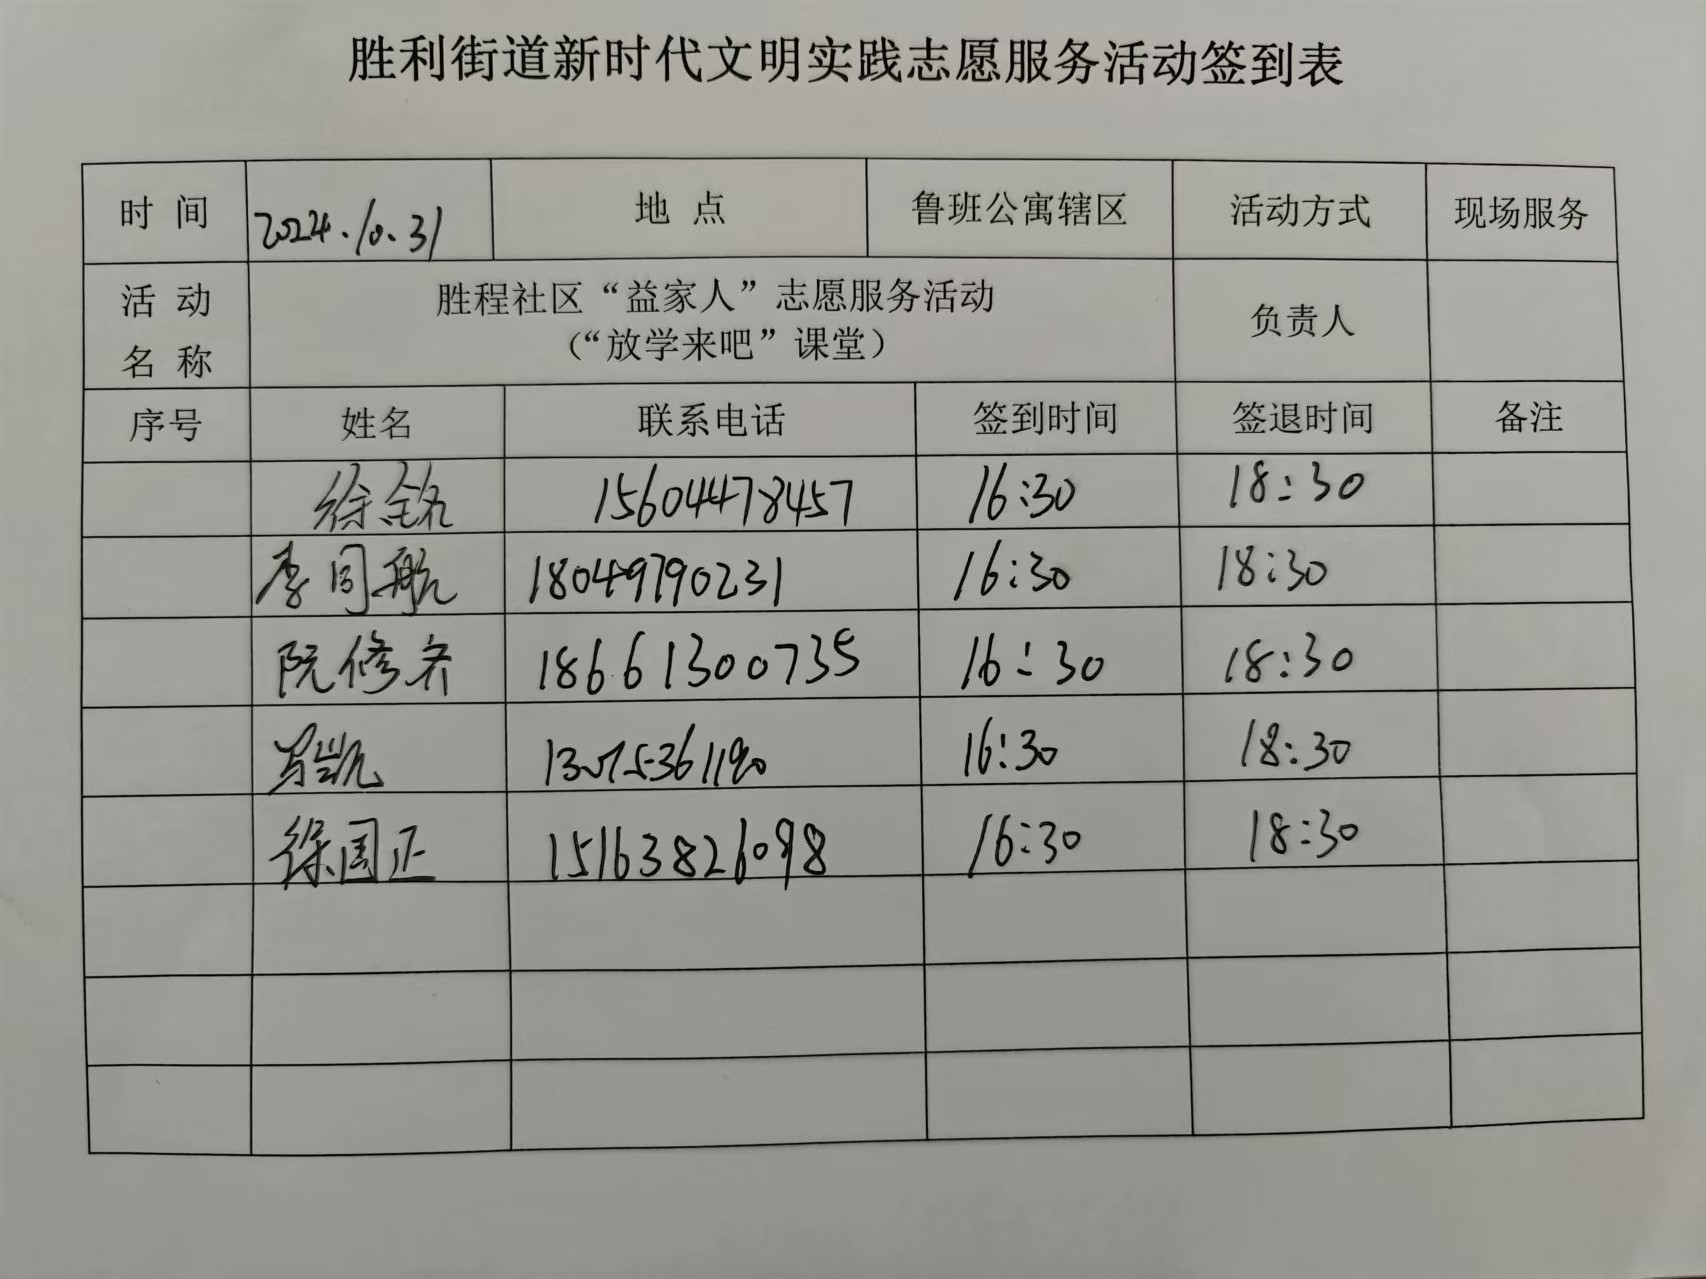 胜利街道新时代文明实践志愿服务活动签到表
时 间 2024.10.31 地 点 鲁班公寓辖区 活动方式 现场服务
活 动 名 称 胜程社区“益家人”志愿服务活动 负责人
（“放学来吧”课堂）
序号 姓名 联系电话 签到时间 签退时间 备注
徐铭 15604478457 16:30 18:30
李同航 18049790231 16:30 18:30
阮修齐 18661300735 16:30 18:30
16:30 18:30
徐国正 15163826098 16:30 18:30